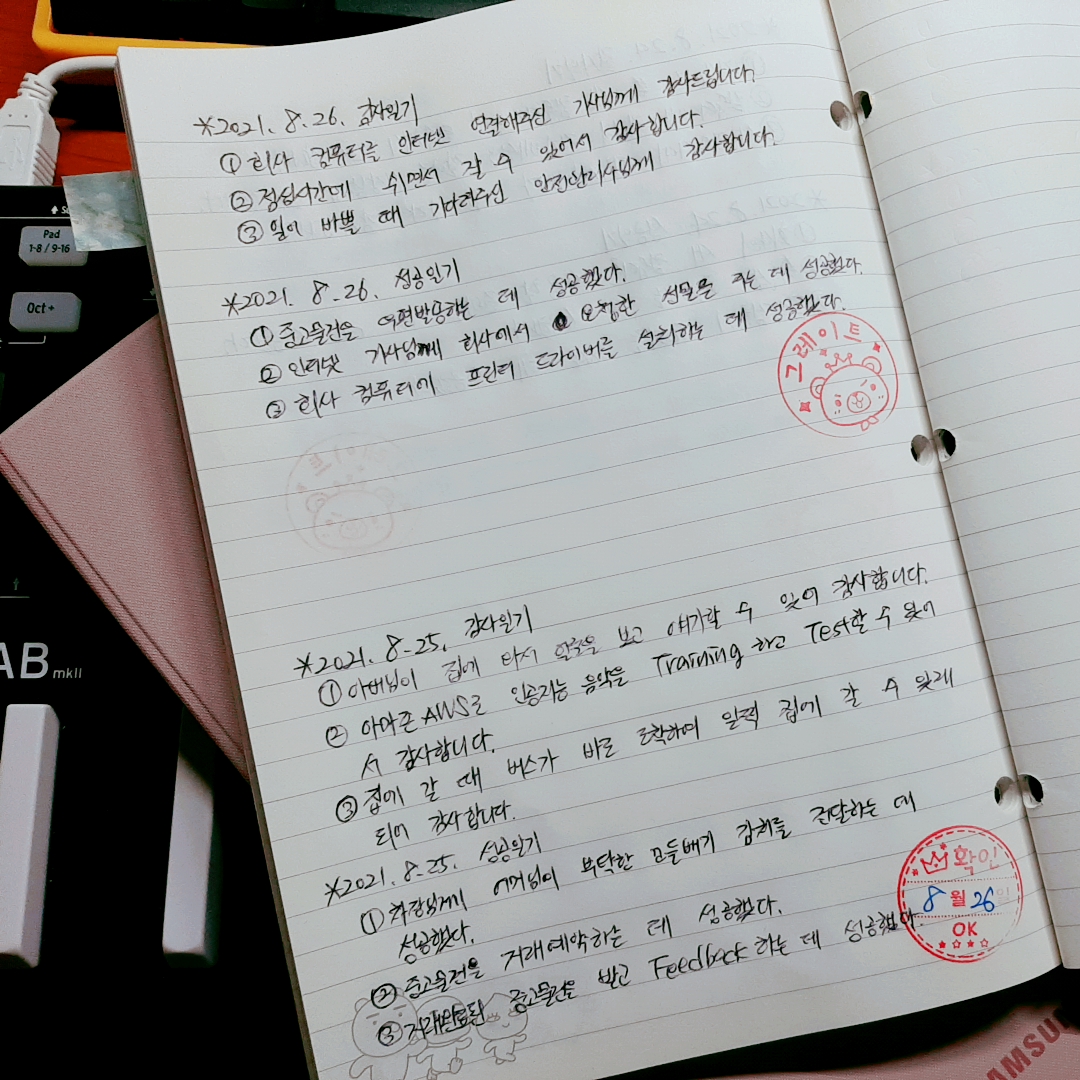 *2021. 8.26. 감사일기
① 회사 컴퓨터를 인터넷 연결해주신 기사님께 감사드립니다.
② 점심시간에 쉬면서 잘 수 있어서 감사합니다.
③ 일이 바쁠 때 기다려주신 안전관리사님께 감사합니다.
*2021. 8.26. 성공일기
① 중고물건을 우편발송하는 데 성공했다.
② 인터넷 기사님께 회사에서 요청한 선물을 주는 데 성공했다.
③ 회사 컴퓨터에 프린터 드라이버를 설치하는 데 성공했다.
그레이트
*2021. 8.25. 감사일기
① 아버님이 집에 와서 얼굴을 보고 얘기할 수 있어 감사합니다.
② 아마존 AWS로 인공지능 음악을 Training 하고 Test할 수 있어
서 감사합니다.
③ 집에 갈 때 버스가 바로 도착하여 일찍 집에 갈 수 있게
되어 감사합니다.
*2021. 8.25. 성공일기
① 어머님이 부탁한 고들빼기 김치를 전달하는 데
성공했다.
② 중고물건을 거래예약하는 데 성공했다.
③ 거래완료된 중고물건을 받고 Feedback 하는 데 성공했다.
확인
8월 26일
OK
Pad
1-8 / 9-16
Oct+
AB
mkII
AMSU